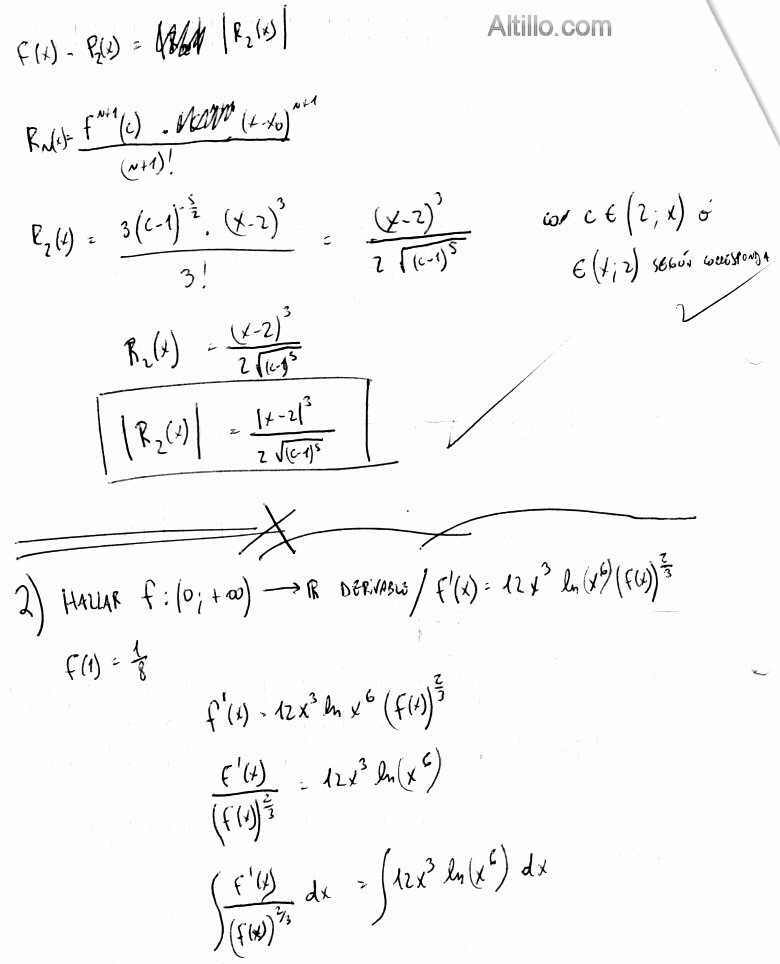 Altillo.com
f(x) - P₂(x) = |R₂(x)|
Rₙ(x) = fⁿ⁺¹(c) . (x-x₀)ⁿ⁺¹ / (n+1)!
R₂(x) = 3(c-1)^(-5/2) . (x-2)³ / 3! = (x-2)³ / 2√(c-1)⁵ con c ∈ (2; x) ó
∈ (x; 2) SEGÚN CORRESPONDA
R₂(x) = (x-2)³ / 2√(c-1)⁵
|R₂(x)| = |x-2|³ / 2√(c-1)⁵
2) HALLAR f: (0; +∞) → ℝ DERIVABLE / f'(x) = 12x³ ln(x⁶) (f(x))^(2/3)
f(1) = 1/8
f'(x) = 12x³ ln x⁶ (f(x))^(2/3)
f'(x) / (f(x))^(2/3) = 12x³ ln(x⁶)
∫ f'(x) / (f(x))^(2/3) dx = ∫ 12x³ ln(x⁶) dx